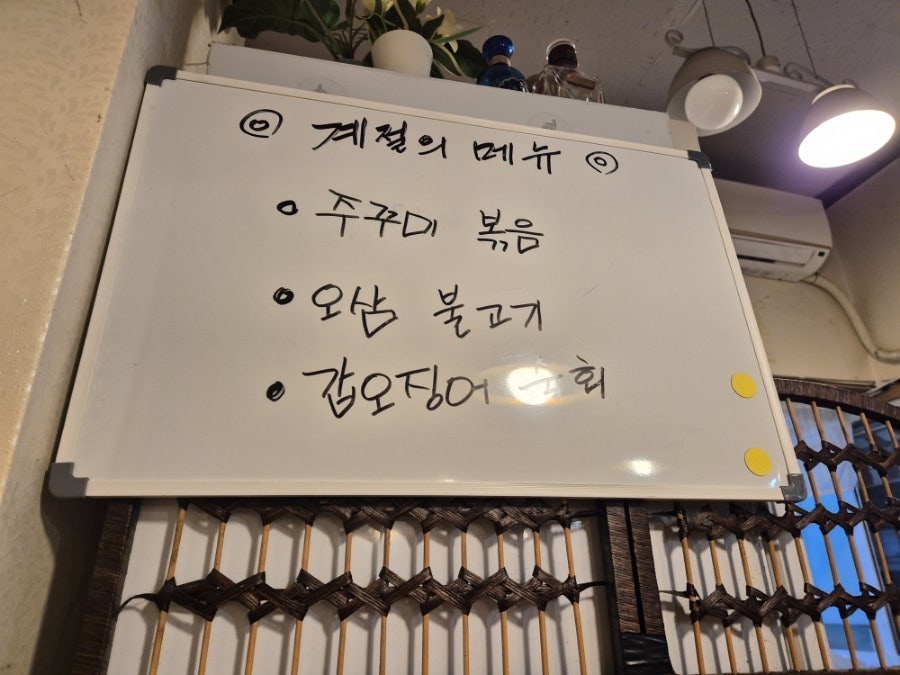 ◎ 계절의 메뉴 ◎
• 주꾸미 볶음
• 오삼 불고기
• 갑오징어